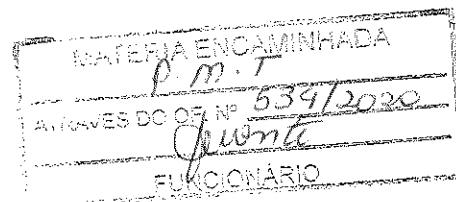 MATÉRIA ENCAMINHADA
P.M.T
ATRAVÉS DO OF. Nº 534/2020
FUNCIONÁRIO